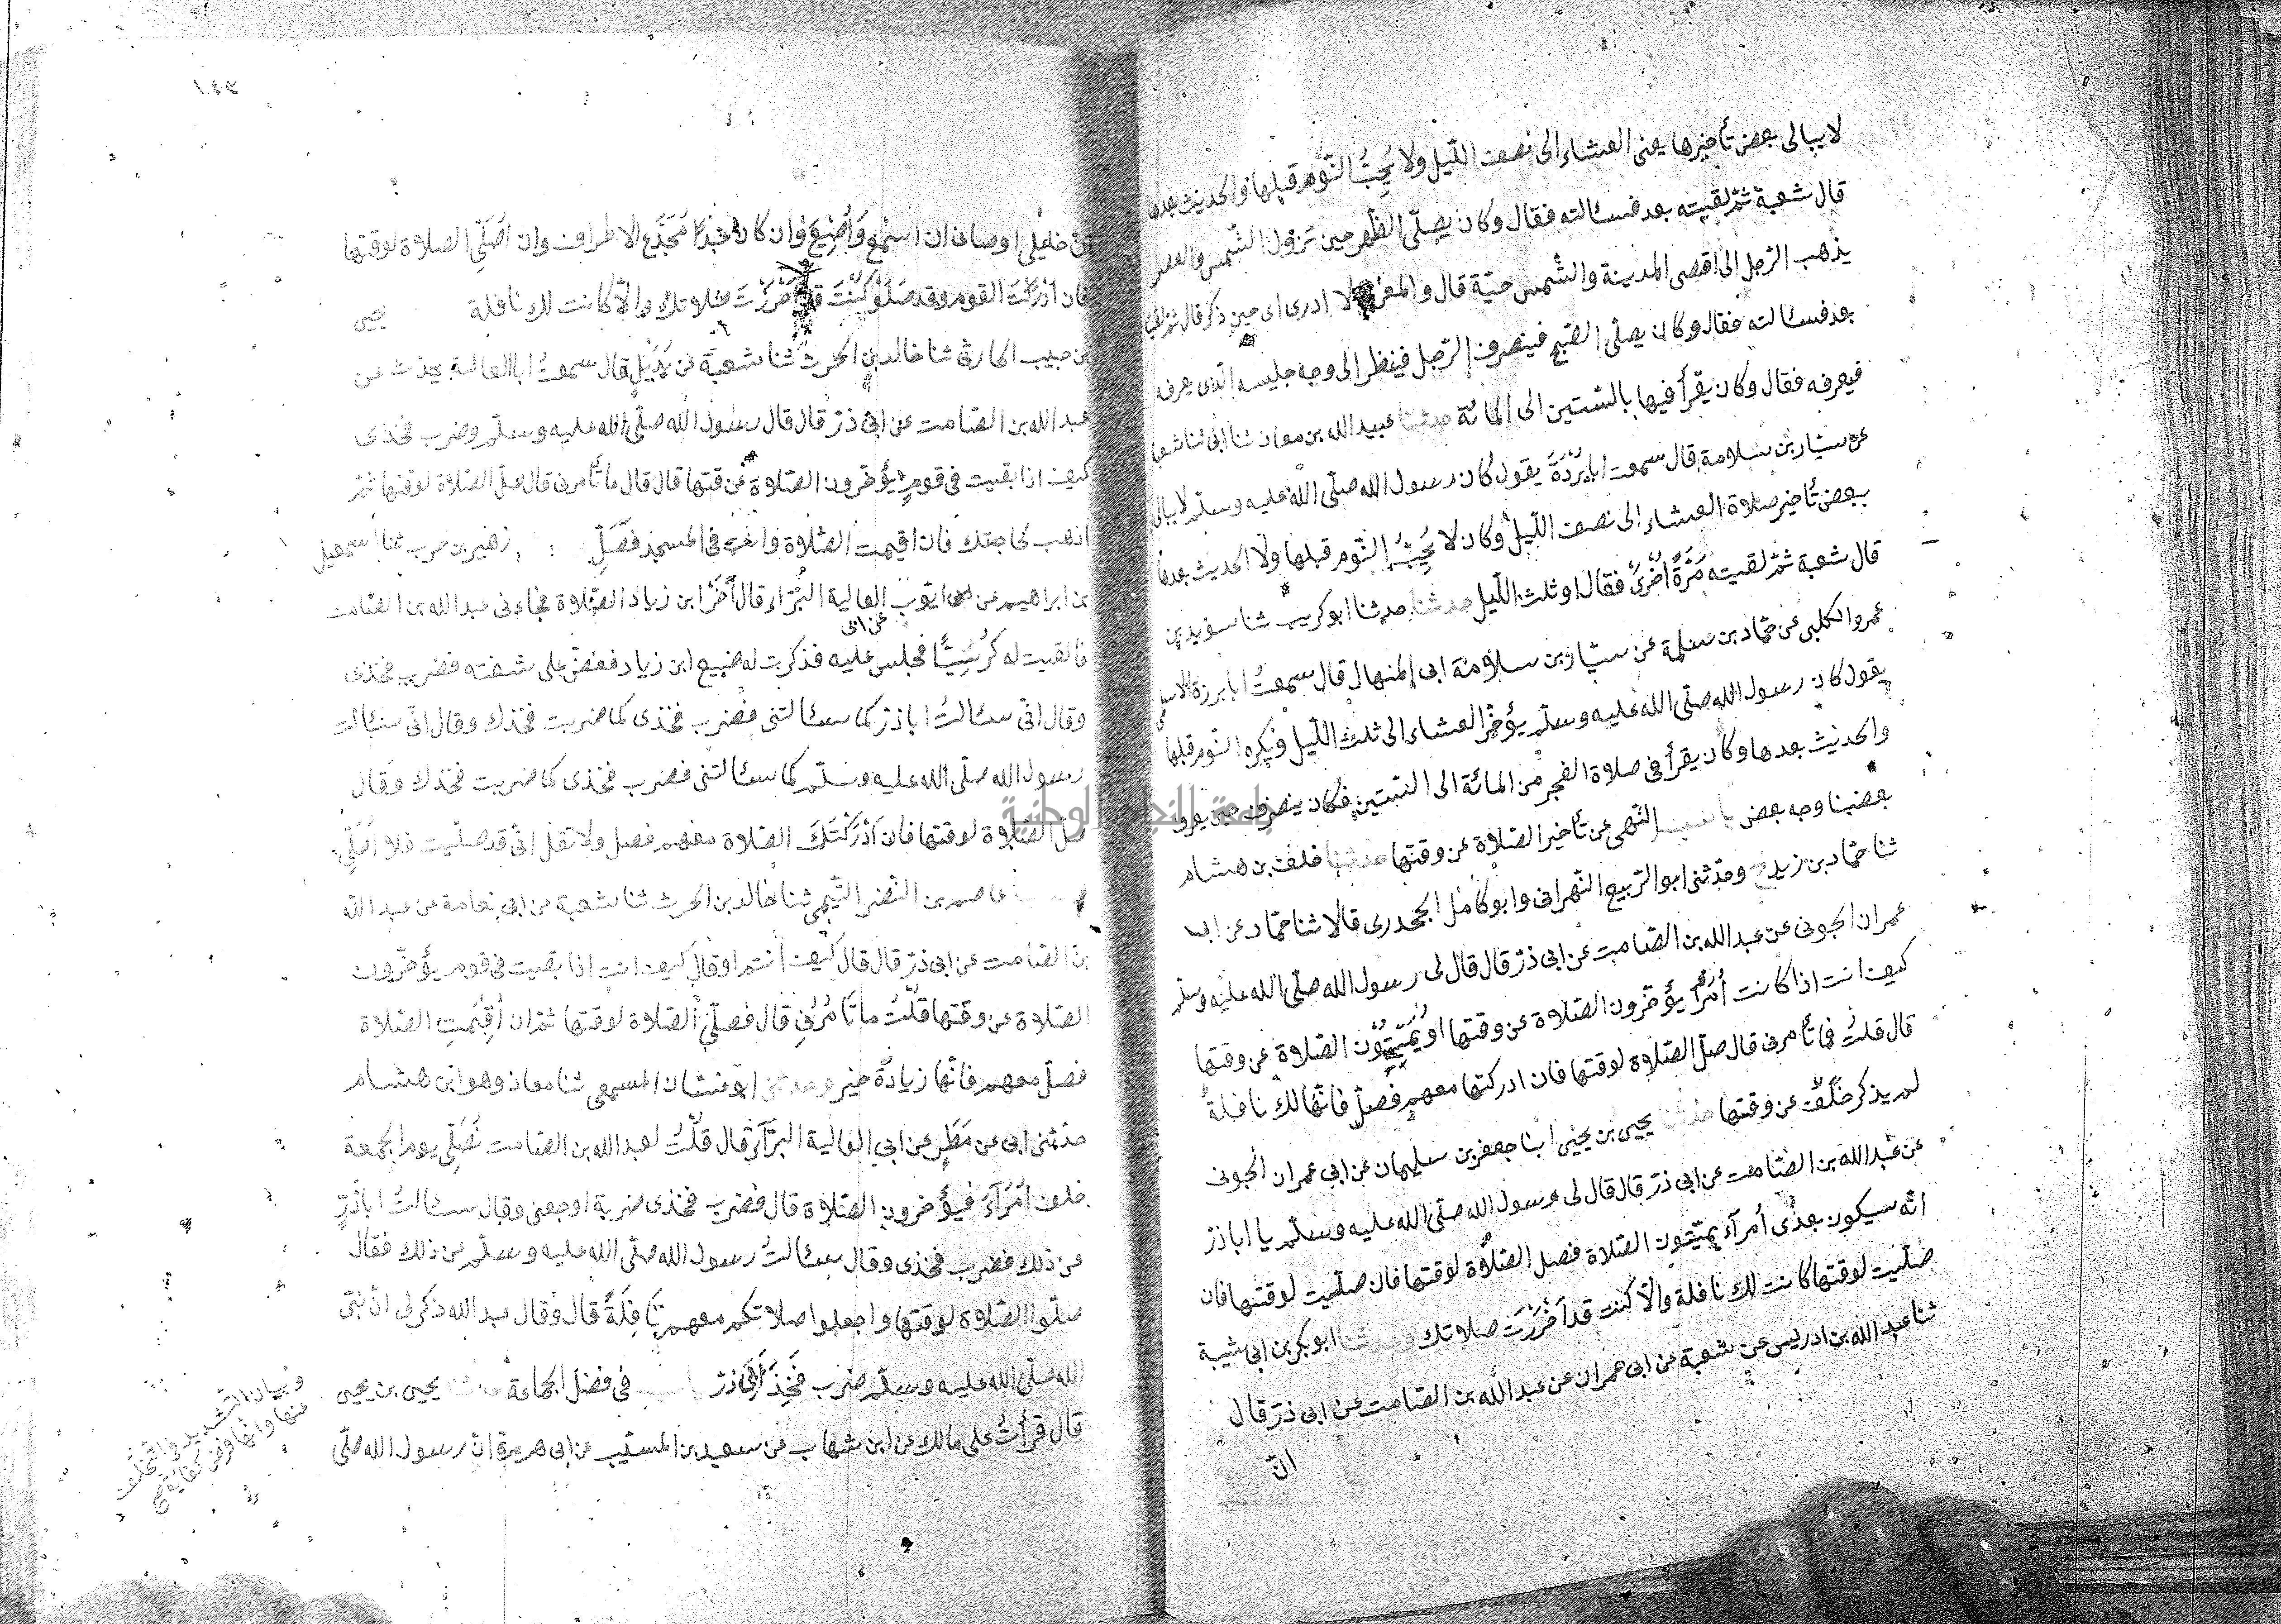 لا يبالى بعض تأخيرها يعنى العشاء الى نصف الليل ولا يُحِبُّ النّوم قبلها ولا الحديث بعدها
قال شعبة ثمّ لقيته بعد فسئالته فقال وكان يصلّى الظّهر حين تزول الشّمس والعصر
يذهب الرّجل الى اقصى المدينة والشّمس حيّة قال والمغرب لا ادرى اى حين ذكر قال ثمّ لقيته
بعد فسئالته فقال وكان يصلّى الصّبح فينصرف الرّجل فينظر الى وجه جليسه الّذى يعرفه
فيعرفه فقال وكان يقرأ فيها بالسّتين الى المائة حدثنا عبيد الله بن معاذ ثنا ابى ثنا شعبة
عن سيّار بن سلامة قال سمعت ابا بَرْزَةَ يقول كان رسول الله صلّى الله عليه وسلّم لا يبالى
ببعض تأخير صلاة العشاء الى نصف اللّيل وكان لا يُحِبُّ النّوم قبلها ولا الحديث بعدها
قال شعبة ثمّ لقيته مَرَّةً اُخْرىٰ فقال او ثلث اللّيل حدثنا حدثنا ابو كريب ثنا سويد بن
عمرو الكلبى عن حمّاد بن سلمة عن سيّار بن سلامة ابى المنهال قال سمعتُ ابا برزة الاسلمى
يقول كان رسول الله صلّى الله عليه وسلّم يؤخّر العشاء الى ثلث اللّيل ويكره النّوم قبلها
والحديث بعدها وكان يقرأ فى صلاة الفجر من المائة الى السّتين وكان ينصرف حين يعرف
بعضنا وجه بعض باب النّهى عن تأخير الصّلاة عن وقتها حدثنا خلف بن هشام
ثنا حمّاد بن زيد ح وحدّثنى ابو الرّبيع الزّهرانى وابو كامل الجحدرى قالا ثنا حمّاد عن ابى
عمران الجونى عن عبد الله بن الصّامت عن ابى ذرّ قال قال لى رسول الله صلّى الله عليه وسلّم
كيف انت اذا كانت اُمَرَآءُ يؤخّرون الصّلاة عن وقتها او يُمِيتُونَ الصّلاة عن وقتها
قال قلتُ فما تأمرنى قال صلّ الصّلاة لوقتها فان ادركتها معهم فصلّ فانّها لك نافلةٌ
لم يذكر خَلَفٌ عن وقتها حدثنا يحيى بن يحيى انبا جعفر بن سليمان عن ابى عمران الجونى
عن عبد الله بن الصّامت عن ابى ذرّ قال قال لى رسول الله صلّى الله عليه وسلّم يا ابا ذرّ
انّه سيكون بعدى اُمرآء يميتون الصّلاة فصل الصّلاة لوقتها فان صلّيت لوقتها فان
صلّيت لوقتها كانت لك نافلة والّا كنت قد اَحْرَزْتَ صلاتك وحدثنا ابو بكر بن ابى شيبة
ثنا عبد الله بن ادريس عن شعبة عن ابى عمران عن عبد الله بن الصّامت عن ابى ذرّ قال
انّ
١٤٣
انّ خليلى اوصانى ان اسْمَعَ وَاُطِيعَ وَان كان عَبْدًا مُجَدَّعَ الاطراف وان اُصَلِّىَ الصلاة لوقتها
فان اَدْرَكْتَ القوم وقد صَلَّوْ كُنْتَ قد اَحْرَزْتَ صلاتك والّا كانت لك نافلة يحيى
بن حبيب الحارثى ثنا خالد بن الحرث ثنا شعبة عن بُدَيْلٍ قال سمعتُ ابا العالية يحدّث عن
عبد الله بن الصّامت عن ابى ذرّ قال قال رسول الله صلّى الله عليه وسلّم وضرب فخذى
كيف اذا بقيت فى قومٍ يؤخّرون الصّلاة عن وقتها قال قال ما تأمرنى قال صلّ الصّلاة لوقتها ثمّ
اذهب لحاجتك فان اقيمت الصّلاة وانت فى المسجد فَصَلِّ زهير بن حرب ثنا اسمعيل
بن ابراهيم عن ايّوب عن ابى العالية البُرّاء قال اَخَّرَ ابن زياد الصّلاة فجاءنى عبد الله بن الصّامت
فالقيت له كُرسِيًّا فجلس عليه فذكرت له صنيع ابن زياد فعضّ على شفته فضرب فخذى
وقال انّى سئالتُ ابا ذرّ كما سئالتنى فضرب فخذى كما ضربت فخذك وقال انّى سئالت
رسول الله صلّى الله عليه وسلّم كما سئالتنى فضرب فخذى كما ضربت فخذك وقال
صلّ الصّلاة لوقتها فان اَدْرَكَتْكَ الصّلاة معهم فصل ولا تقل انّى قد صلّيت فلا اُصَلِّى
عاصم بن النّضر التّيمى ثنا خالد بن الحرث ثنا شعبة عن ابى نعامة عن عبد الله
بن الصّامت عن ابى ذرّ قال قال كيف انتم او قال كيف انت اذا بقيت فى قوم يؤخّرون
الصّلاة عن وقتها قُلْتُ ما تَأمُرُنِى قال فصلّى الصّلاة لوقتها ثمّ ان اُقِيمَتِ الصّلاة
فصلّ معهم فانّها زيادةُ خير وحدثنى ابو غسّان المسمعى ثنا معاذ وهو ابن هشام
حدّثنى ابى عن مَطَرٍ عن ابى العالية البرَّآءِ قال قُلْتُ لعبد الله بن الصّامت نُصَلِّى يوم الجمعة
خلف اُمَرَآءَ فيؤخّرون الصّلاة قال فضرب فخذى ضربة اوجعنى وقال سئالتُ ابا ذَرٍّ
عن ذلك فضرب فخذى وقال سئالتُ رسول الله صلّى الله عليه وسلّم عن ذلك فقال
صلّوا الصّلاة لوقتها واجعلوا صلاتكم معهم نَافِلَةً قال وقال عبد الله ذكر لى انّ نبىّ
الله صلّى الله عليه وسلّم ضرب فَخِذَ اَبِى ذرّ باب فى فضل الجماعة حدثنا يحيى بن يحيى
قال قرأتُ على مالك عن ابن شهاب عن سعيد بن المسيّب عن ابى هريرة انّ رسول الله صلّى
وبيان التشديد فى التخلّف
عنها وانّها فرض كفاية
جامعة النجاح الوطنية